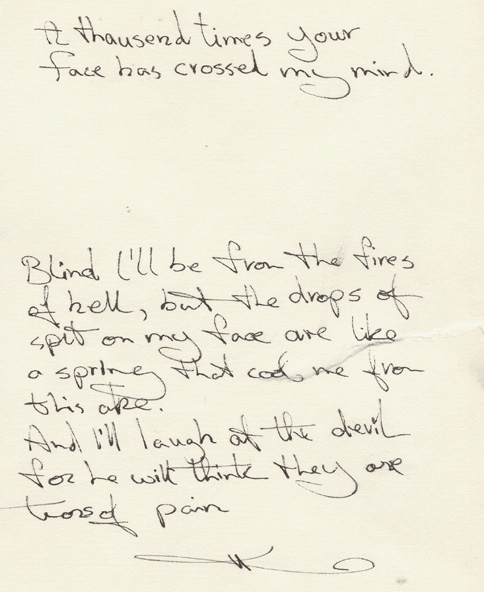 A thausend times your
face has crossed my mind.
Blind I'll be from the fires
of hell, but the drops of
spit on my face are like
a spriney that cools me from
this ake.
And I'll laugh at the devil
for he will think they are
of pain